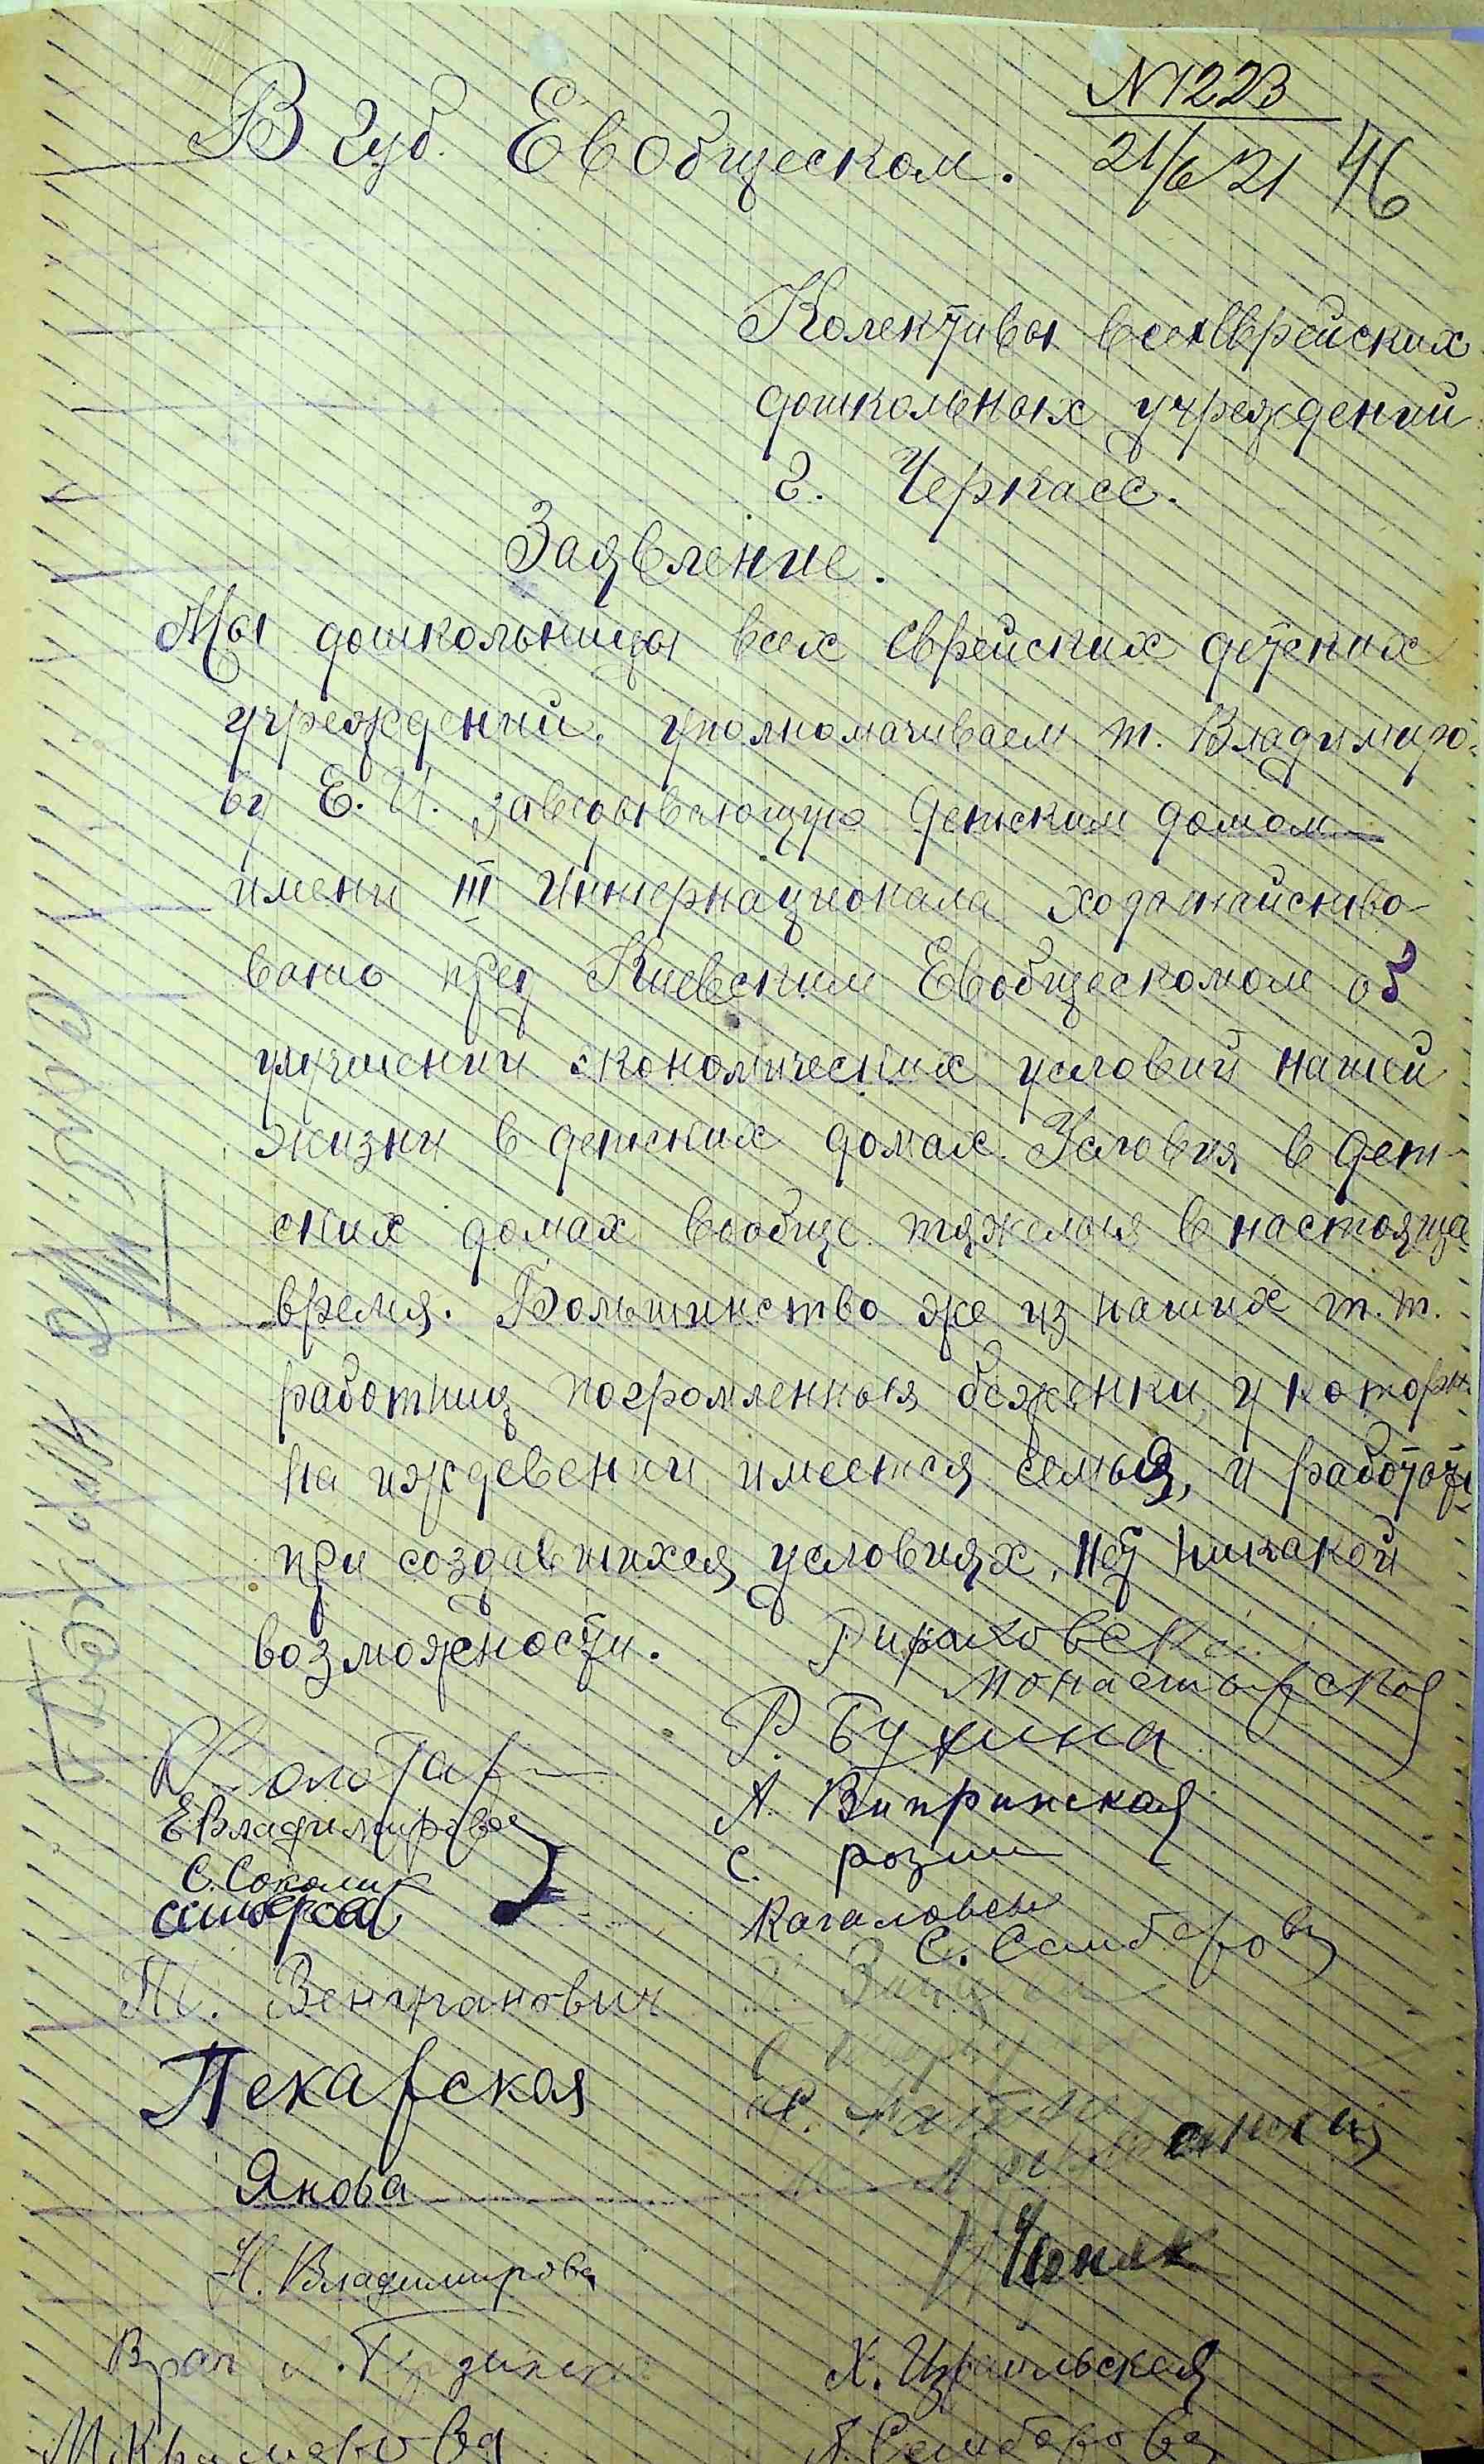 N 1223
21/6 21 46
В Губ. Евобщеском.
Колективы всех Еврейских
дошкольных учреждений
г. Черкасс.
Заявление.
Мы дошкольницы всех Еврейских детских
учреждений. уполномачиваем т. Владимиро-
ву Е. И. заведывающую детским домом
имени III Интернационала ходатайство-
вать пред Киевским Евобщескомом об
улучшении экономических условий нашей
жизни в детских домах. Условия в дет-
ских домах вообще тяжелыя в настояще
время. Большинство же из наших т.т.
работниц погромленныя беженки, у котор
на иждевении имеется семья, и работать
при создавшихся условиях, нет никакой
возможности.
Монастырская
Р. Бухина
Е Владимирова
А. Випринская
С. Соколин
С. розин
Кагаловск
С. Семберова
Т. Венгранович
Пекарская
Янова
Н. Владимирова
Черняк
Врач Л.
Х. Израильская
М. Крамерова
Семберова